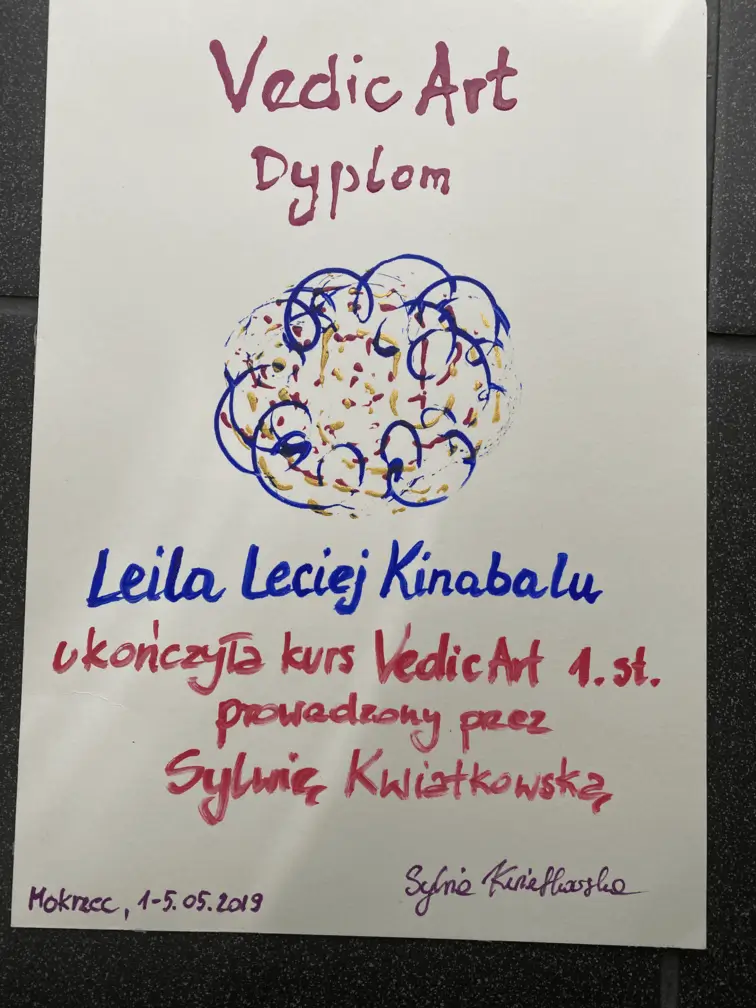 Vedic Art
Dyplom
Leila Leciej Kinabalu
ukończyła kurs Vedic Art 1. st.
prowadzony przez
Sylwię Kwiatkowską
Mokrzec, 1-5.05.2019
Sylwia Kwiatkowska